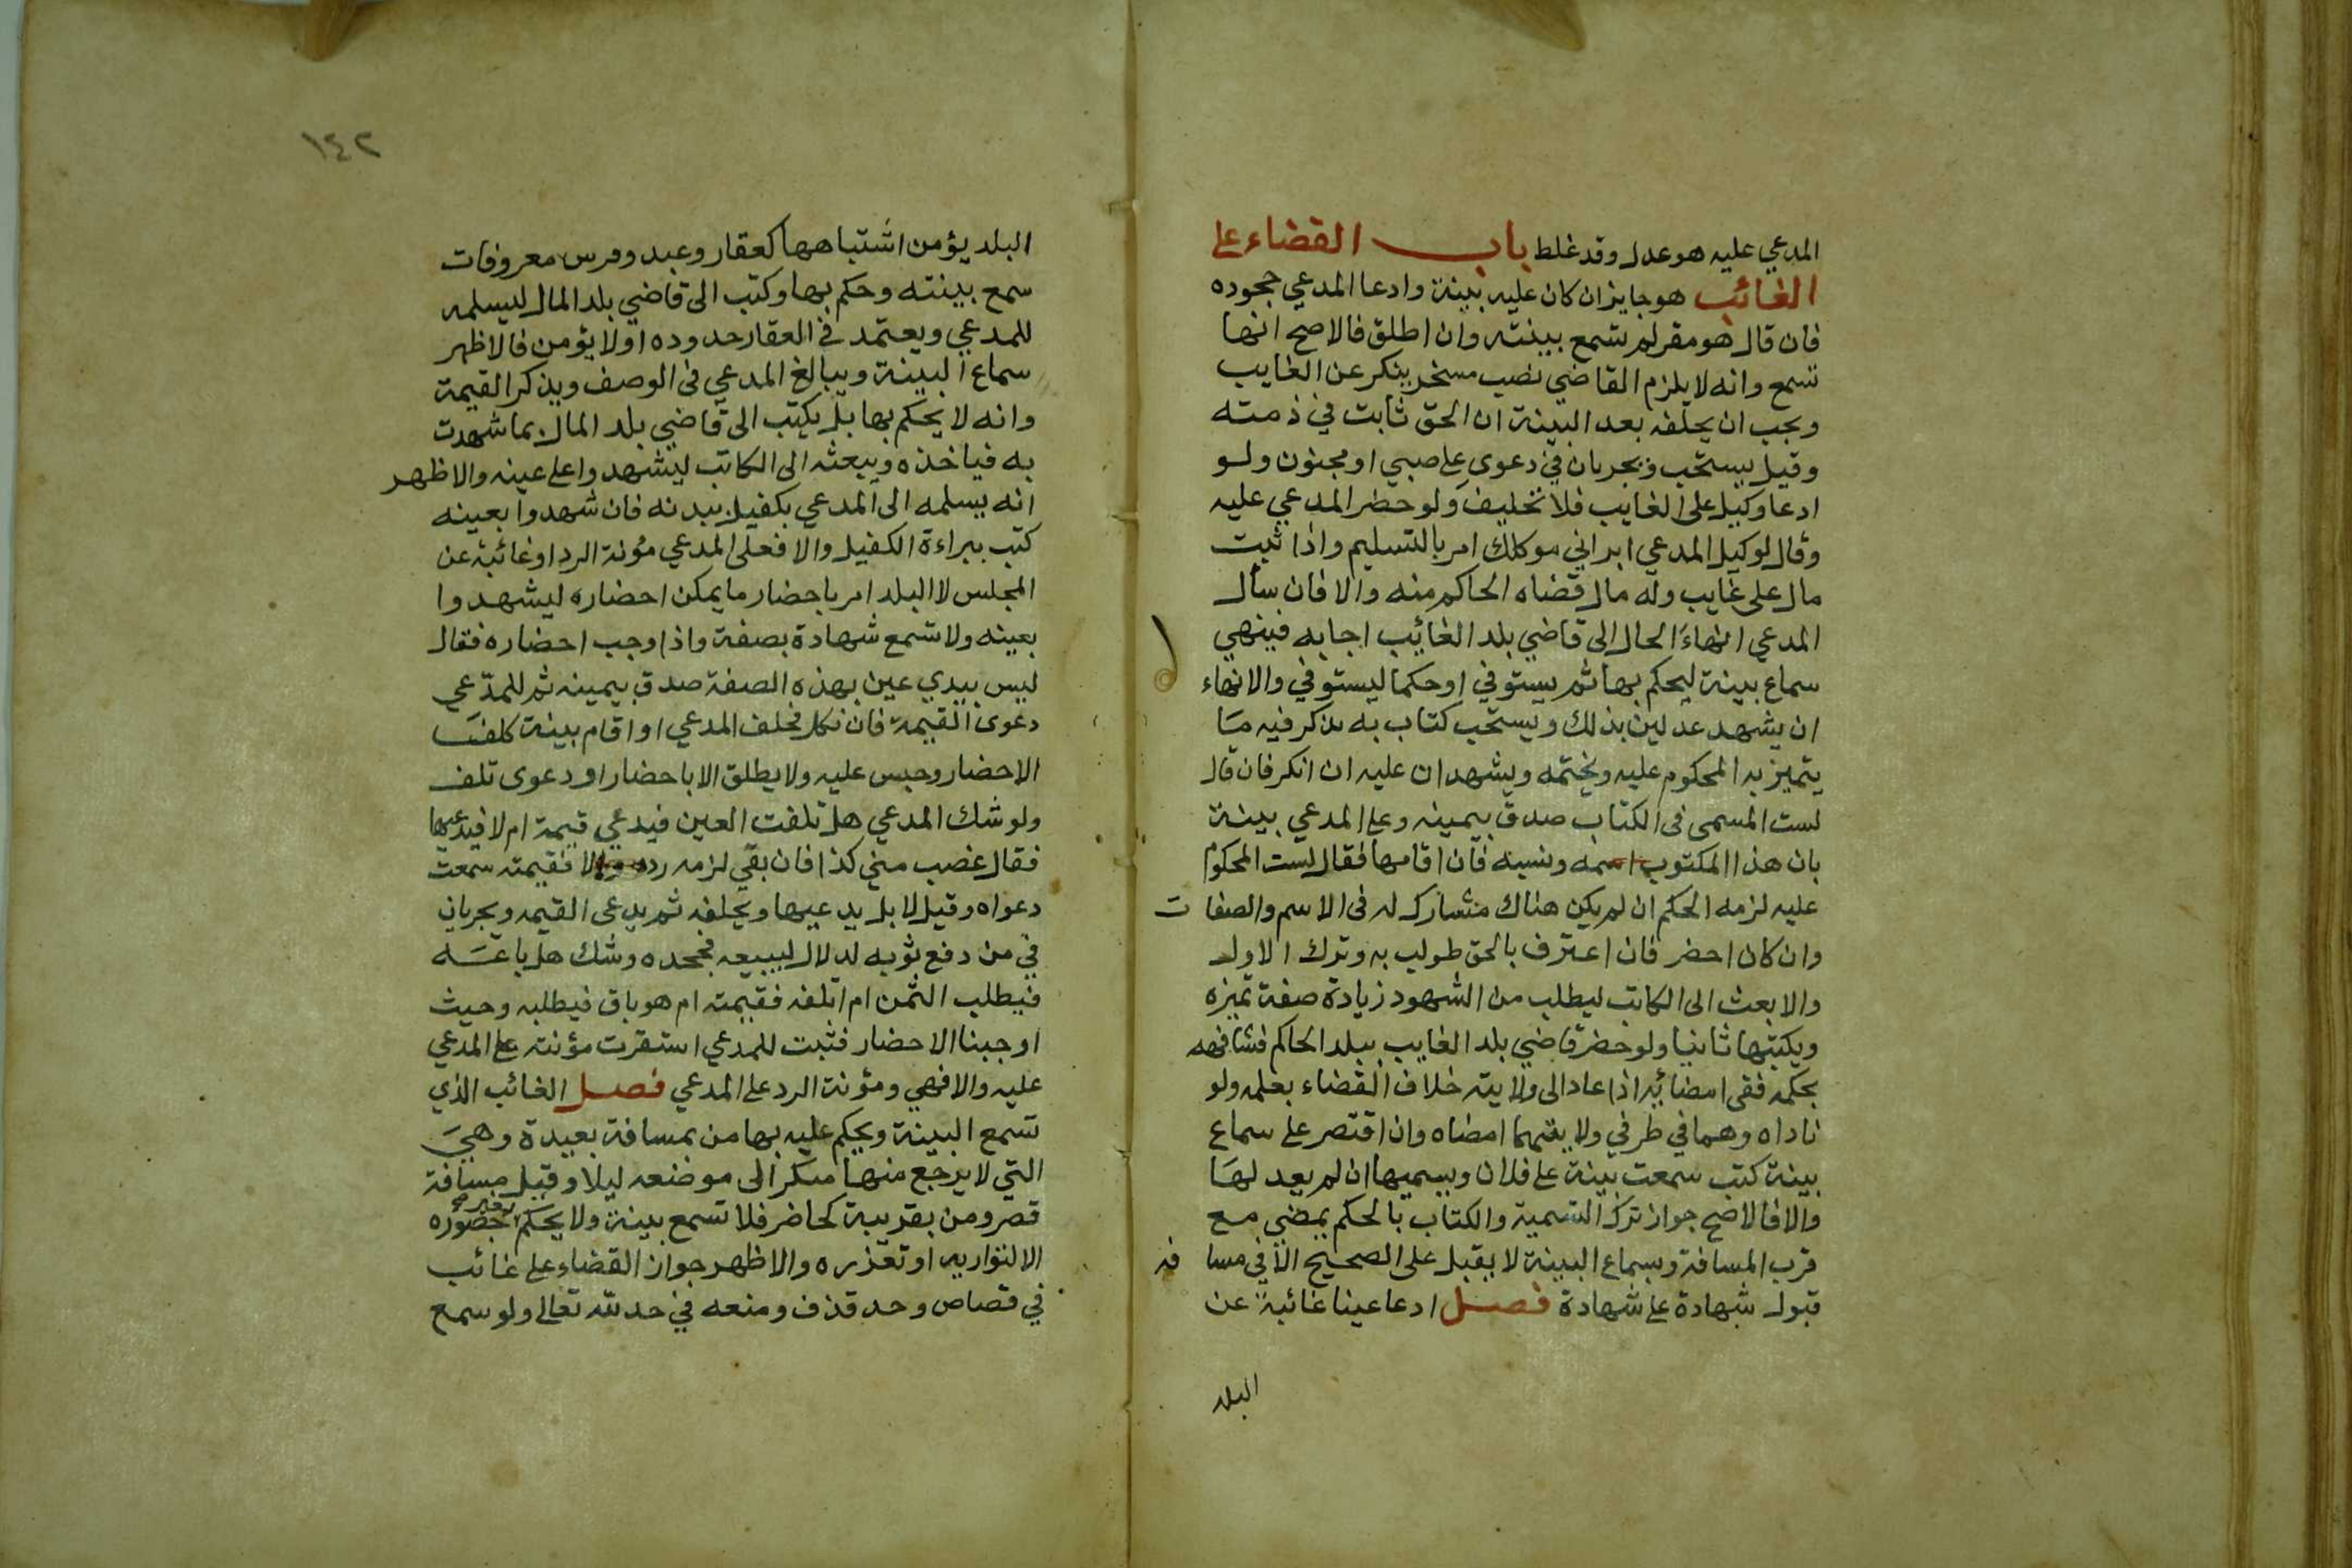 المدعي عليه هو عدل وقد غلط باب القضاء على
الغائب هو جايز ان كان عليه بينة وادعا المدعي جحوده
فان قال هو مقر لم تسمع بينته وان اطلق فالاصح انها
تسمع وانه لا يلزم القاضي نصب مسخر ينكر عن الغايب
ويجب ان يحلفه بعد البينة ان الحق ثابت في ذمته
وقيل يستحب ويجريان في دعوى على صبي او مجنون ولو
ادعا وكيل على الغايب فلا تحليف ولو حضر المدعي عليه
وقال لوكيل المدعي ابراني موكلك امر بالتسليم واذا ثبت
مال على غايب وله مال قضاه الحاكم منه والا فان سال
المدعي انهاء الحال الى قاضي بلد الغائب اجابه فينهي
سماع بينة ليحكم بها ثم يستوفي او حكما ليستوفي والانهاء
ان يشهد عدلين بذلك ويستحب كتاب به يذكر فيه ما
يتميز به المحكوم عليه ويختمه ويشهدان عليه ان انكر فان قال
لست المسمى في الكتاب صدق بيمينه وعلى المدعي بينة
بان هذا المكتوب اسمه ونسبه فان اقامها فقال لست المحكوم
عليه لزمه الحكم ان لم يكن هناك مشارك له في الاسم والصفات
وان كان احضر فان اعترف بالحق طولب به وترك الاول
والا بعث الى الكاتب ليطلب من الشهود زيادة صفة تميزه
ويكتبها ثانيا ولو حضر قاضي بلد الغايب ببلد الحاكم فشافهه
بحكمه ففي امضائه اذا عاد الى ولايته خلاف القضاء بعلمه ولو
ناداه وهما في طرفي ولايتهما امضاه وان اقتصر على سماع
بينة كتب سمعت بينة على فلان ويسميها ان لم يعد لها
والا فالاصح جواز ترك التسمية والكتاب بالحكم يمضي مع
قرب المسافة وبسماع البينة لا يقبل على الصحيح الا في مسافة
قبول شهادة على شهادة فصل ادعا عينا غائبة عن
البلد
١٤٢
البلد يؤمن اشتباهها كعقار وعبد وفرس معروفات
سمع بينته وحكم بها وكتب الى قاضي بلد المال ليسلمه
للمدعي ويعتمد في العقار حدوده او لا يؤمن فالاظهر
سماع البينة ويبالغ المدعي في الوصف ويذكر القيمة
وانه لا يحكم بها بل يكتب الى قاضي بلد المال بما شهدت
به فياخذه ويبعثه الى الكاتب ليشهدوا على عينه والاظهر
انه يسلمه الى المدعي بكفيل ببدنه فان شهدوا بعينه
كتب ببراءة الكفيل والا فعلى المدعي مؤنة الرد او غائبة عن
المجلس لا البلد امر باحضار ما يمكن احضاره ليشهدوا
بعينه ولا تسمع شهادة بصفة واذا وجب احضاره فقال
ليس بيدي عين بهذه الصفة صدق بيمينه ثم للمدعي
دعوى القيمة فان نكل فحلف المدعي او اقام بينة كلف
الاحضار وحبس عليه ولا يطلق الا باحضار او دعوى تلف
ولو شك المدعي هل تلفت العين فيدعي قيمة ام لا فيدعيها
فقال غصب مني كذا فان بقي لزمه رده والا فقيمته سمعت
دعواه وقيل لا بل يدعيها ويحلفه ثم يدعي القيمه ويجريان
في من دفع ثوبه لدلال ليبيعه فجحده وشك هل باعه
فيطلب الثمن ام اتلفه فقيمته ام هو باق فيطلبه وحيث
اوجبنا الاحضار فثبت للمدعي استقرت مؤنته على المدعي
عليه والا فهي ومؤنة الرد على المدعي فصل الغائب الذي
تسمع البينة ويحكم عليه بها من بمسافة بعيدة وهي
التي لا يرجع منها مبكر الى موضعه ليلا وقيل مسافة
قصر ومن بقريبة كحاضر فلا تسمع بينة ولا يحكم بغير حضوره
الا لتواريه او تعذره والاظهر جواز القضاء على غائب
في قصاص وحد قذف ومنعه في حد لله تعالى ولو سمع